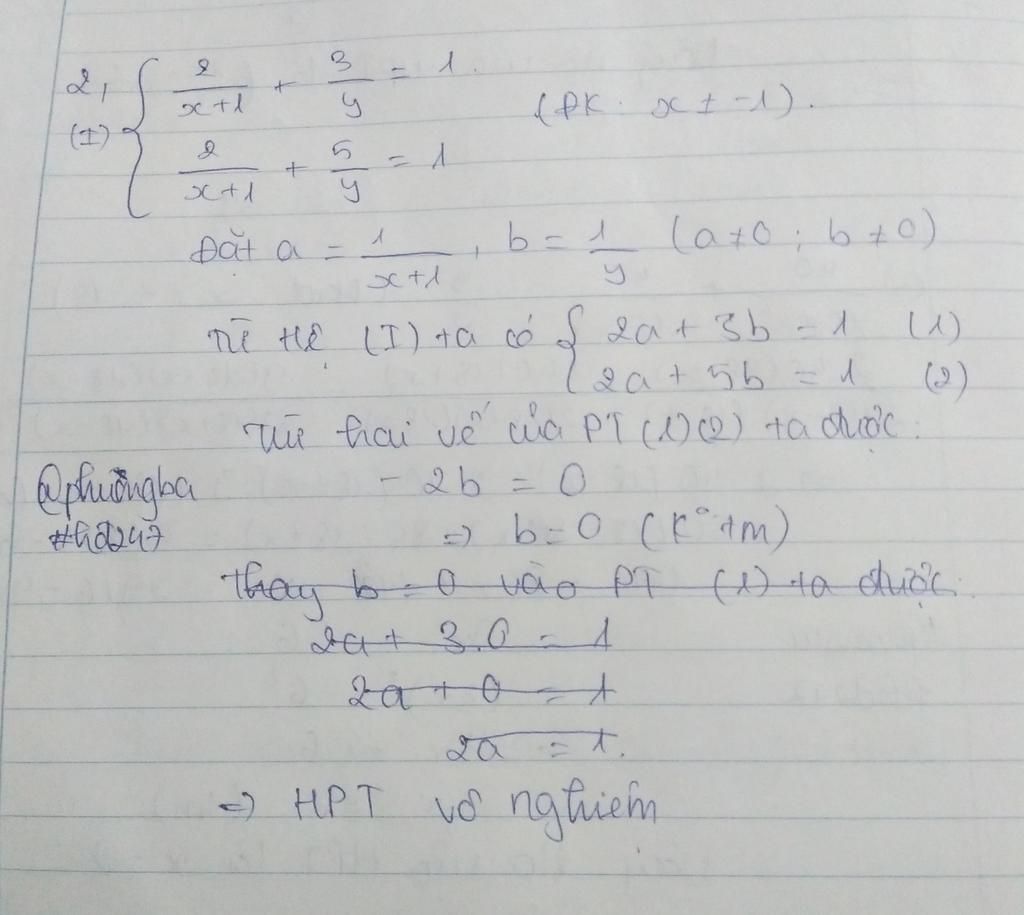 2, (I) { 2/(x+1) + 3/y = 1. (ĐK: x ± -1).
2/(x+1) + 5/y = 1
Đặt a = 1/(x+1), b = 1/y (a ≠ 0 ; b ≠ 0)
Từ Hệ (I) ta có { 2a + 3b = 1 (1)
2a + 5b = 1 (2)
Trừ hai vế của PT (1)(2) ta được:
@phuongba - 2b = 0
#hđ247 => b = 0 (K° tm)
Thay b = 0 vào PT (1) ta được:
2a + 3.0 = 1
2a + 0 = 1
2a = 1.
=> HPT vô nghiệm